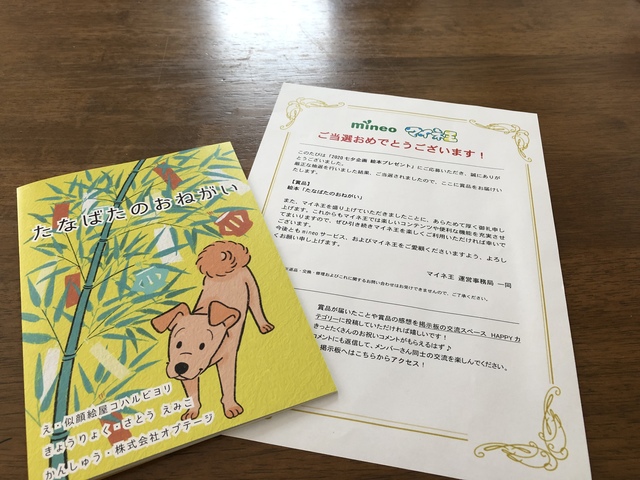 たなばたのおねがい
え・似顔絵屋コハルビヨリ
きょうりょく・さとう えみこ
かんしゅう・株式会社オプテージ
mineo マイネ王
ご当選おめでとうございます！
このたびは「2020モタ企画 絵本プレゼント」にご応募いただき、誠にありが
とうございました。
厳正な抽選を行いました結果、ご当選されましたので、ここに賞品をお届けい
たします。
【賞品】
絵本「たなばたのおねがい」
また、マイネ王を盛り上げていただきましたことに、あらためて厚く御礼申し
上げます。これからもマイネ王では楽しいコンテンツや便利な機能を充実させ
てまいりますので、ぜひ引き続きマイネ王を楽しくご利用いただければ幸いで
ございます。
今後ともmineoサービス、およびマイネ王をご愛顧くださいますよう、よろし
くお願い申し上げます。
マイネ王 運営事務局 一同
返品・交換・修理およびこれに関するお問い合わせはお受けできませんので、ご了承ください。
賞品が届いたことや賞品の感想を掲示板の交流スペース HAPPYカ
テゴリーに投稿していただければ嬉しいです！
きっとたくさんのお祝いコメントがもらえるはず♪
コメントにも返信して、メンバーさん同士の交流を楽しんでください。
掲示板へはこちらからアクセス！